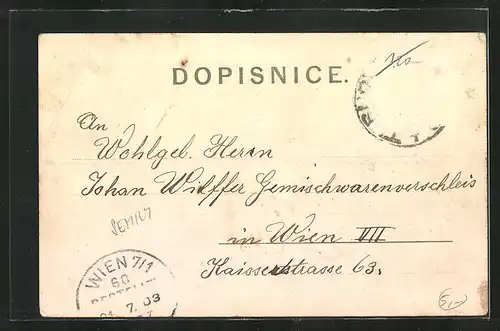 DOPISNICE.
An
Wohlgeb. Herrn
Johan Wilffer Gemischwarenverschleis
in Wien VII
Kaisserstrasse 63.
WIEN 7/1
60
BESTELLT
7. 03